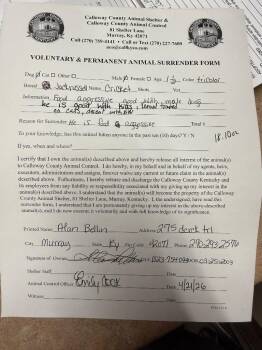 Calloway County Animal Shelter &
Calloway County Animal Control
81 Shelter Lane
Murray, Ky 42071
Call (270) 759-4141 • Call or Text (270) 227-7600
VOLUNTARY & PERMANENT ANIMAL SURRENDER FORM
Dog Cat Other Male Female Age 1 1/2 Color tricolor
Breed Name Cricket Shots Vet
Information Food aggressive good
He is good with kids,
Reason for Surrender He is Food aggressive
To your knowledge, has this animal bitten anyone in the past ten (10) days? Y / N
If yes, when and whose?
I certify that I own the animal(s) described above and hereby release all interest of the animal(s)
to Calloway County Animal Control. I do hereby, in my behalf and in behalf of my agents, heirs,
executors, administrators and assigns, forever waive any current or future claim to the animal(s)
described above. Furthermore, I hereby release and discharge the Calloway County Kentucky and
its employees from any liability or responsibility associated with my giving up my interest in the
animal(s) described above. I understand that the animal(s) will become the property of the Calloway
County Animal Shelter, 81 Shelter Lane, Murray, Kentucky. I, the undersigned, have read this
surrender form. I understand that I am permanently giving up my interest in the above-described
animal(s), and I do now execute it voluntarily and with full knowledge of its significance.
Printed Name Alan Address 275
City Murray State Ky Zip Code 42071 Phone 270.293.2576
Signature of Owner
Shelter Staff Date
Animal Control Officer Emily Cook Date 4/21/26
Witness Date